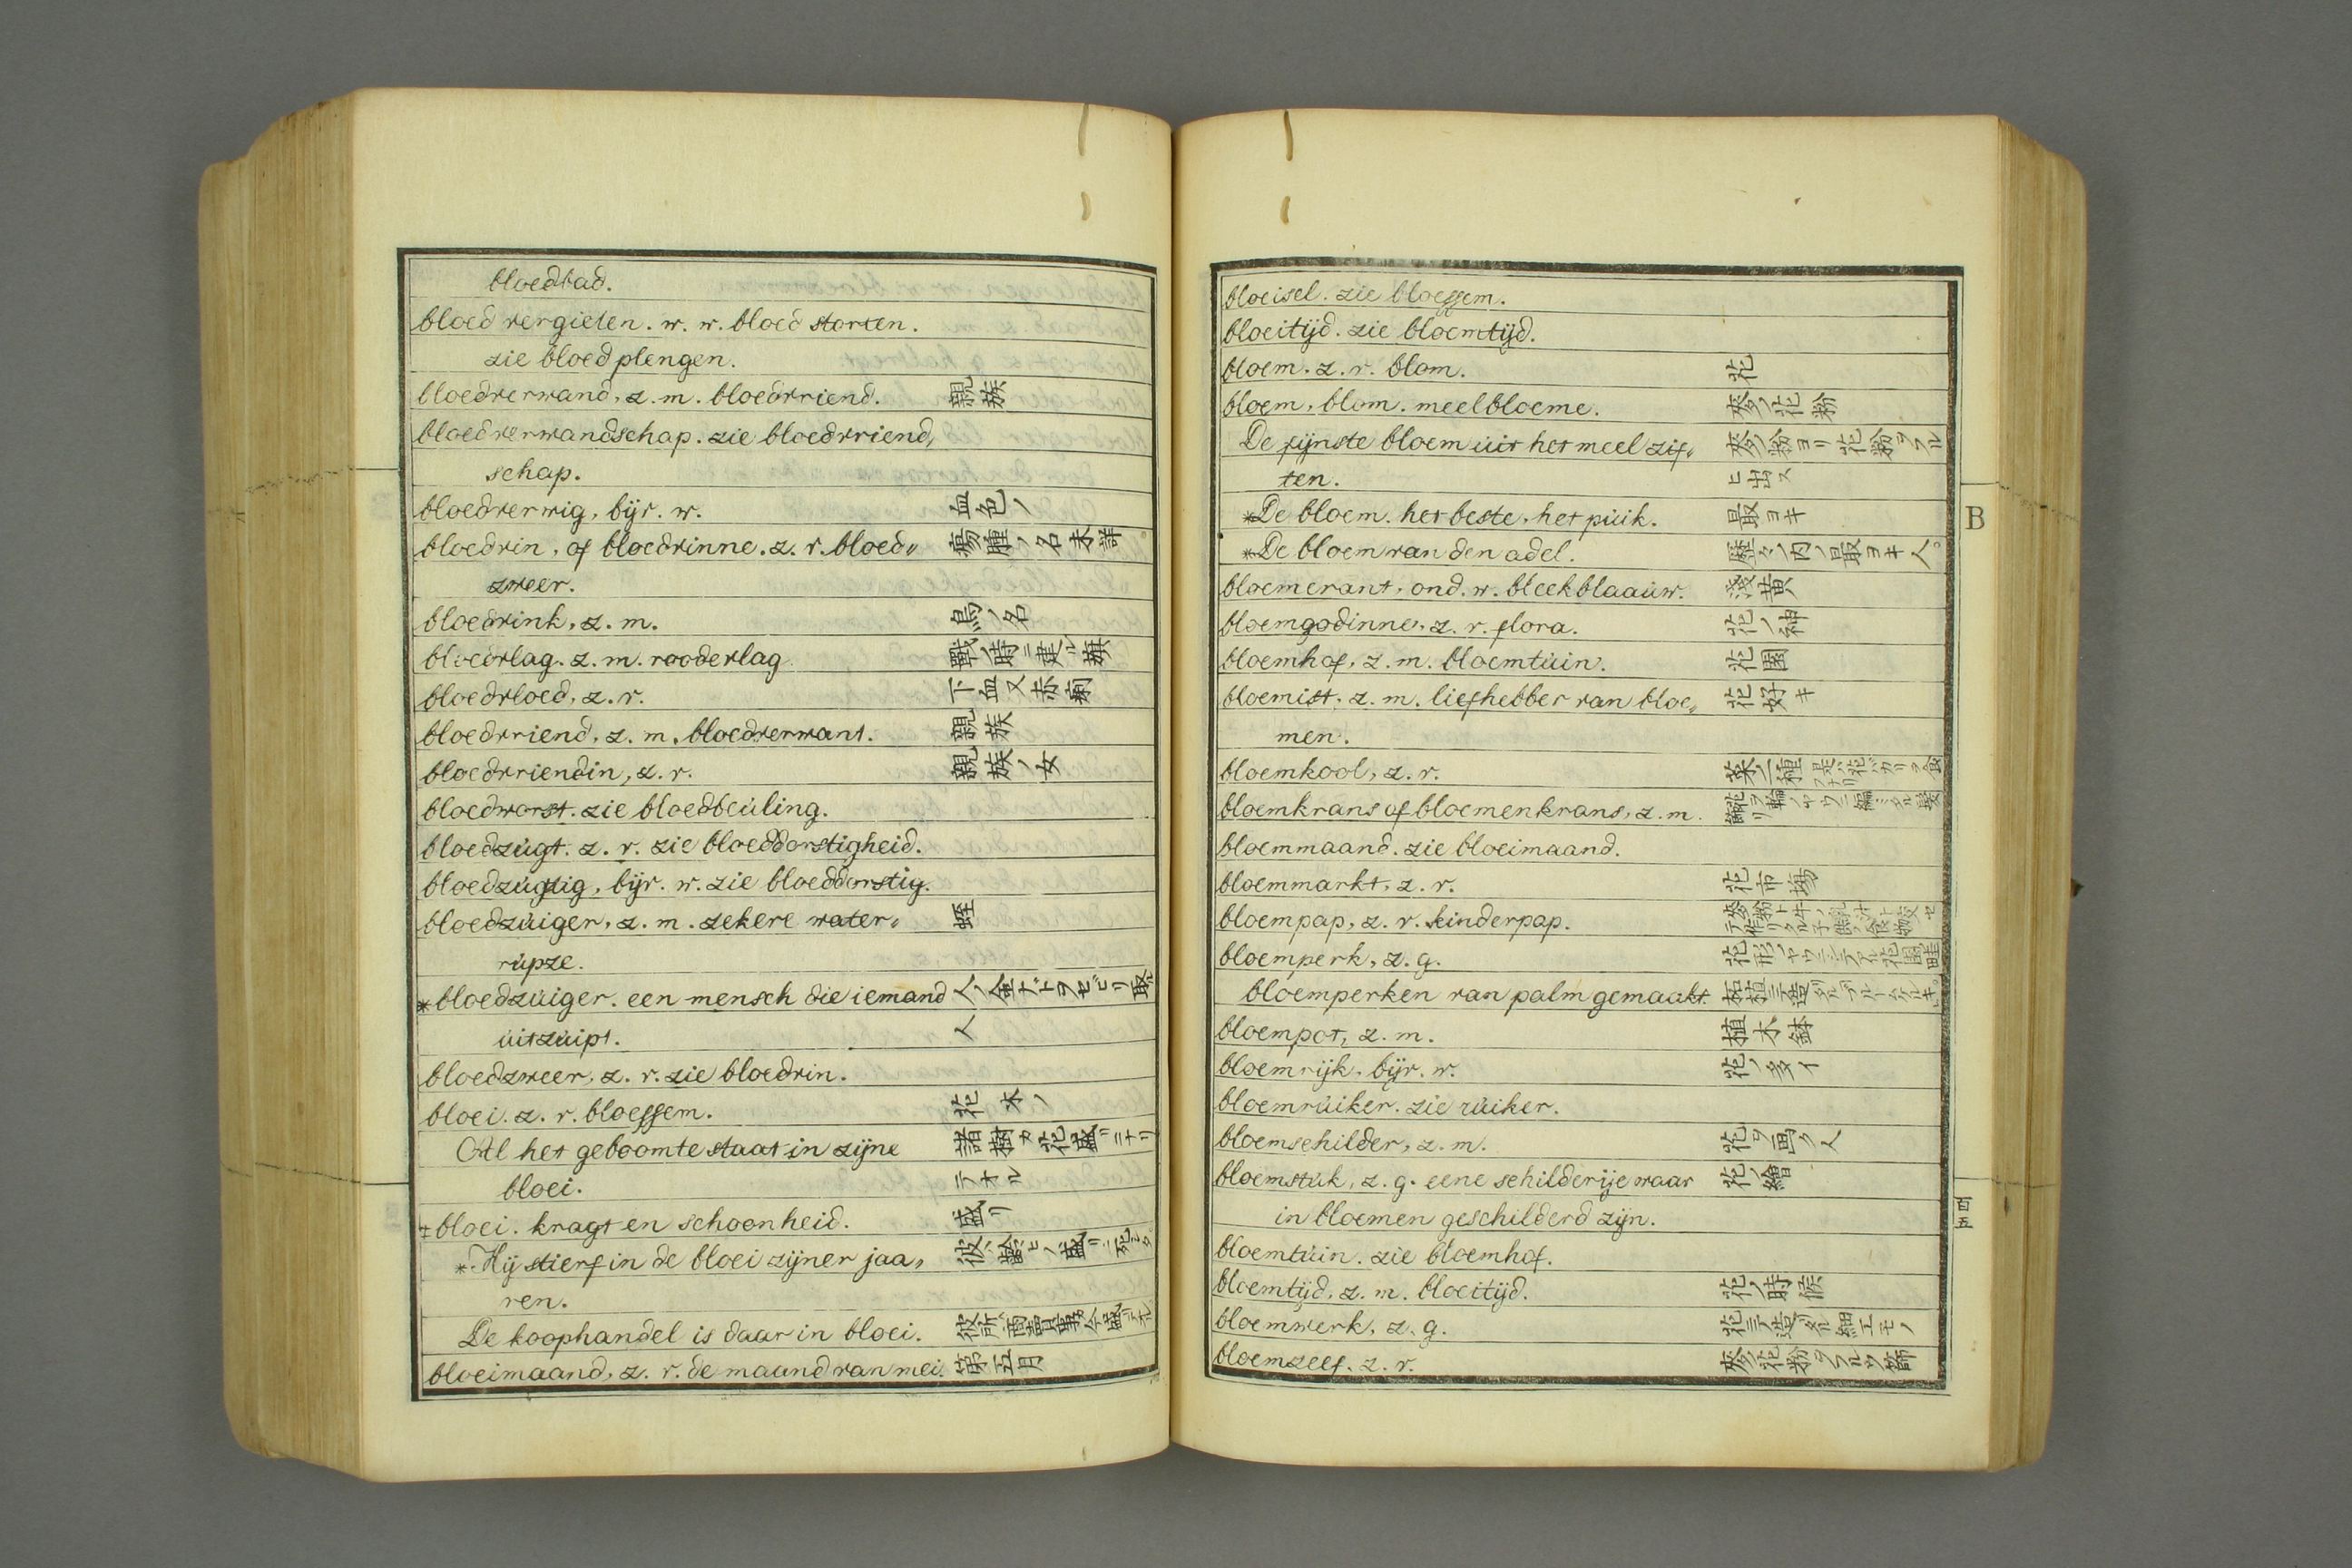 bloedbad.
bloed vergieten. w. w. bloed storten.
zie bloed plengen.
bloedverwand, z. m. bloedvriend. 親族
bloedverwandschap. zie bloedvriend„
schap.
bloedverwig, bijv. w. 血色ノ
bloedvin, of bloedvinne. z. v. bloed„ 瘍腫ノ名未詳
zweer.
bloedvink, z. m. 鳥ノ名
bloedvlag. z. m. roodevlag 戰ノ時ニ建ル旗
bloedvloed, z. v. 下血又赤痢
bloedvriend, z. m. bloedverwant. 親族
bloedvriendin, z. v. 親族ノ女
bloedworst. zie bloedbeúling.
bloedzúgt. z. v. zie bloeddorstigheid.
bloedzúgtig, bijv. w. zie bloeddorstig.
bloedzúiger, z. m. zekere water„ 蛭
rúpze.
*bloedzúiger. een mensch die iemand 人ノ金ナドヲセビリ取ル
úitzúipt. 人
bloedzweer, z. v. zie bloedvin.
bloei. z. v. bloessem. 花 木ノ
Al het geboomte staat in zijne 諸樹カ花盛リニナリ
bloei. テオル
‡bloei. kragt en schoonheid. 盛リ
*Hij stierf in de bloei zijner jaa„ 彼ハ齢ヒノ盛リニ死シタ
ren.
De koophandel is daar in bloei. 彼所ハ商賣事今盛リテオル
bloeimaand, z. v. de maand van mei. 第五月
bloeisel. zie bloessem.
bloeitijd. zie bloemtijd.
bloem. z. v. blom. 花
bloem, blom. meelbloeme. 麥ノ花粉
De fijnste bloem úit het meel zif„ 麥ノ粉ヨリ花粉ヲフル
ten. ヒ出ス
*De bloem. het beste, het púik. 最ヨキ
*De bloem van den adel. 歴々ノ内ノ最ヨキ人。
bloemerant, ond. w. bleekblaaúw. 淺黄
bloemgodinne. z. v. flora. 花ノ神
bloemhof, z. m. bloemtúin. 花園
bloemist. z. m. liefhebber van bloe„ 花好キ
men.
bloemkool, z. v. 菜ノ一種 是ハ花バカリヲ食フナリ
bloemkrans of bloemenkrans, z. m. 花ヲ輪ノヤウニ編ミタル髪飾リ
bloemmaand. zie bloeimaand.
bloemmarkt, z. v. 花市塲
bloempap, z. v. kinderpap. 麥粉ト牛ノ乳汁ト交セテ作リタル子供ノ食物
bloemperk, z. g. 花形ノヤウニシテアル花園畦
bloemperken van palm gemaakt.
bloempot, z. m. 植木鉢
bloemrijk. bijv. w. 花ノ多イ
bloemrúiker. zie rúiker.
bloemschilder, z. m. 花ヲ画ク人
bloemstúk, z. g. eene schilderije waar 花ノ繪
in bloemen geschilderd zijn.
bloemtúin. zie bloemhof.
bloemtijd, z. m. bloeitijd. 花ノ時候
bloemwerk, z. g. 花ニテ造リタル細工モノ
bloemzeef. z. v. 麥ノ花粉ヲフルウ篩
B
百五